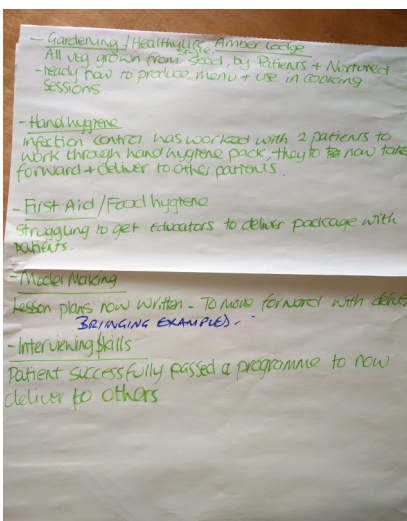 - Gardening / Healthy life Amber Lodge
style.
All veg grown from seed, by Patients + Nurtured
- ready now to produce menu + use in cooking
sessions
- Hand hygiene
Infection control has worked with 2 patients to
work through hand hygiene pack, they to now take
forward + deliver to other patients.
- First Aid / Food hygiene
Struggling to get Educators to deliver package with
patients.
- Model Making
Lesson plans now written - To move forward with
BRINGING EXAMPLES.
- Interviewing skills
Patient successfully passed a programme to now
deliver to others